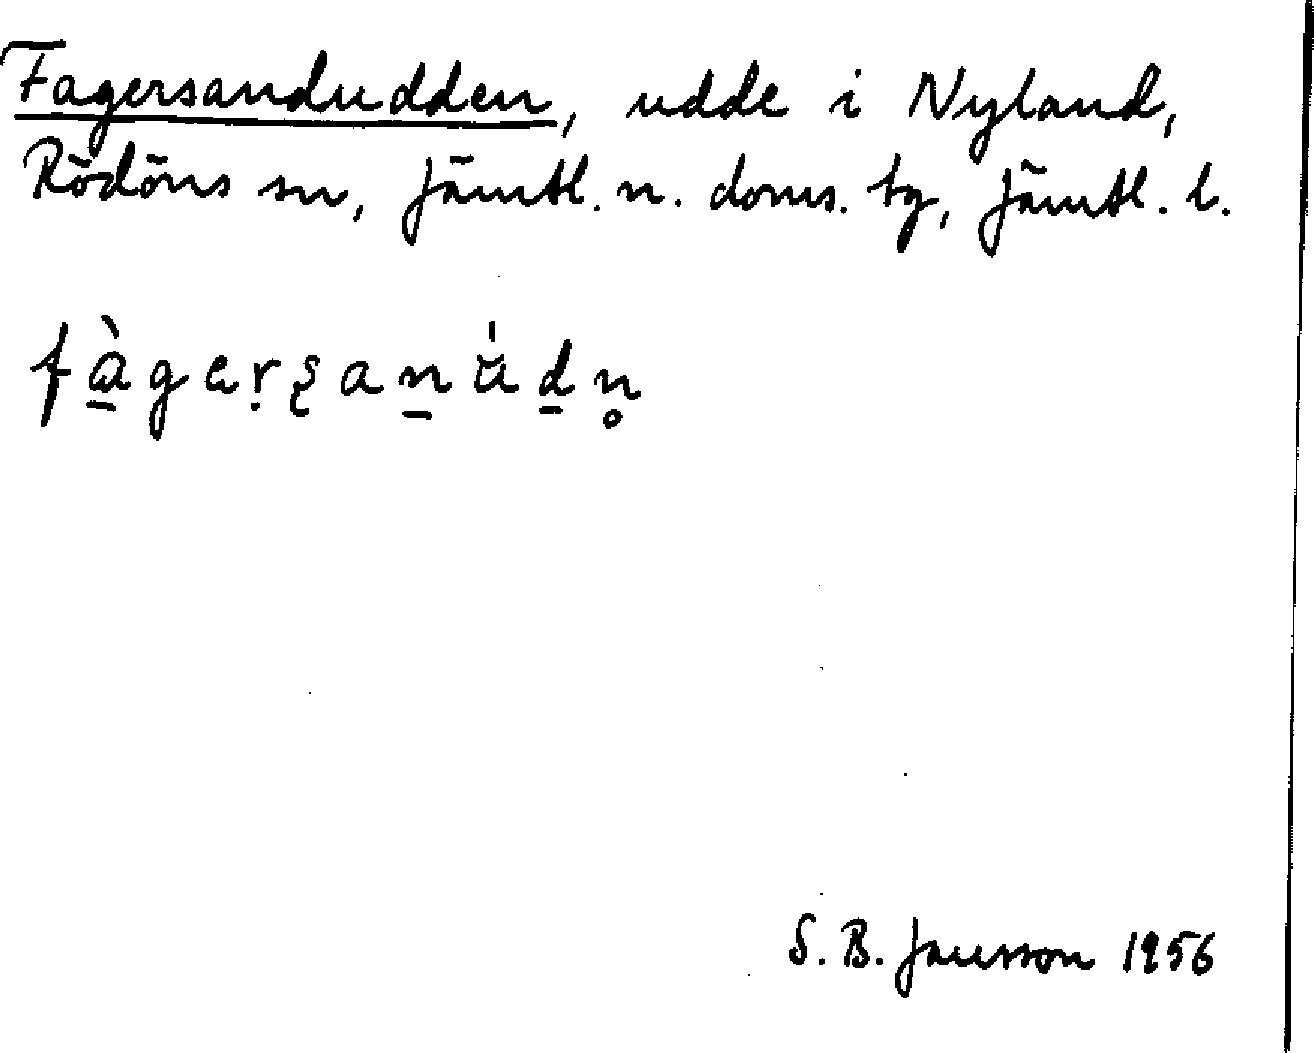 Fagersandudden, udde i Nyland,
Rödöns sn, Jämtl. n. doms. tg, Jämtl. l.
fà̱gerṣʂan̠u̍d̠n̥
S. B. Jansson 1956